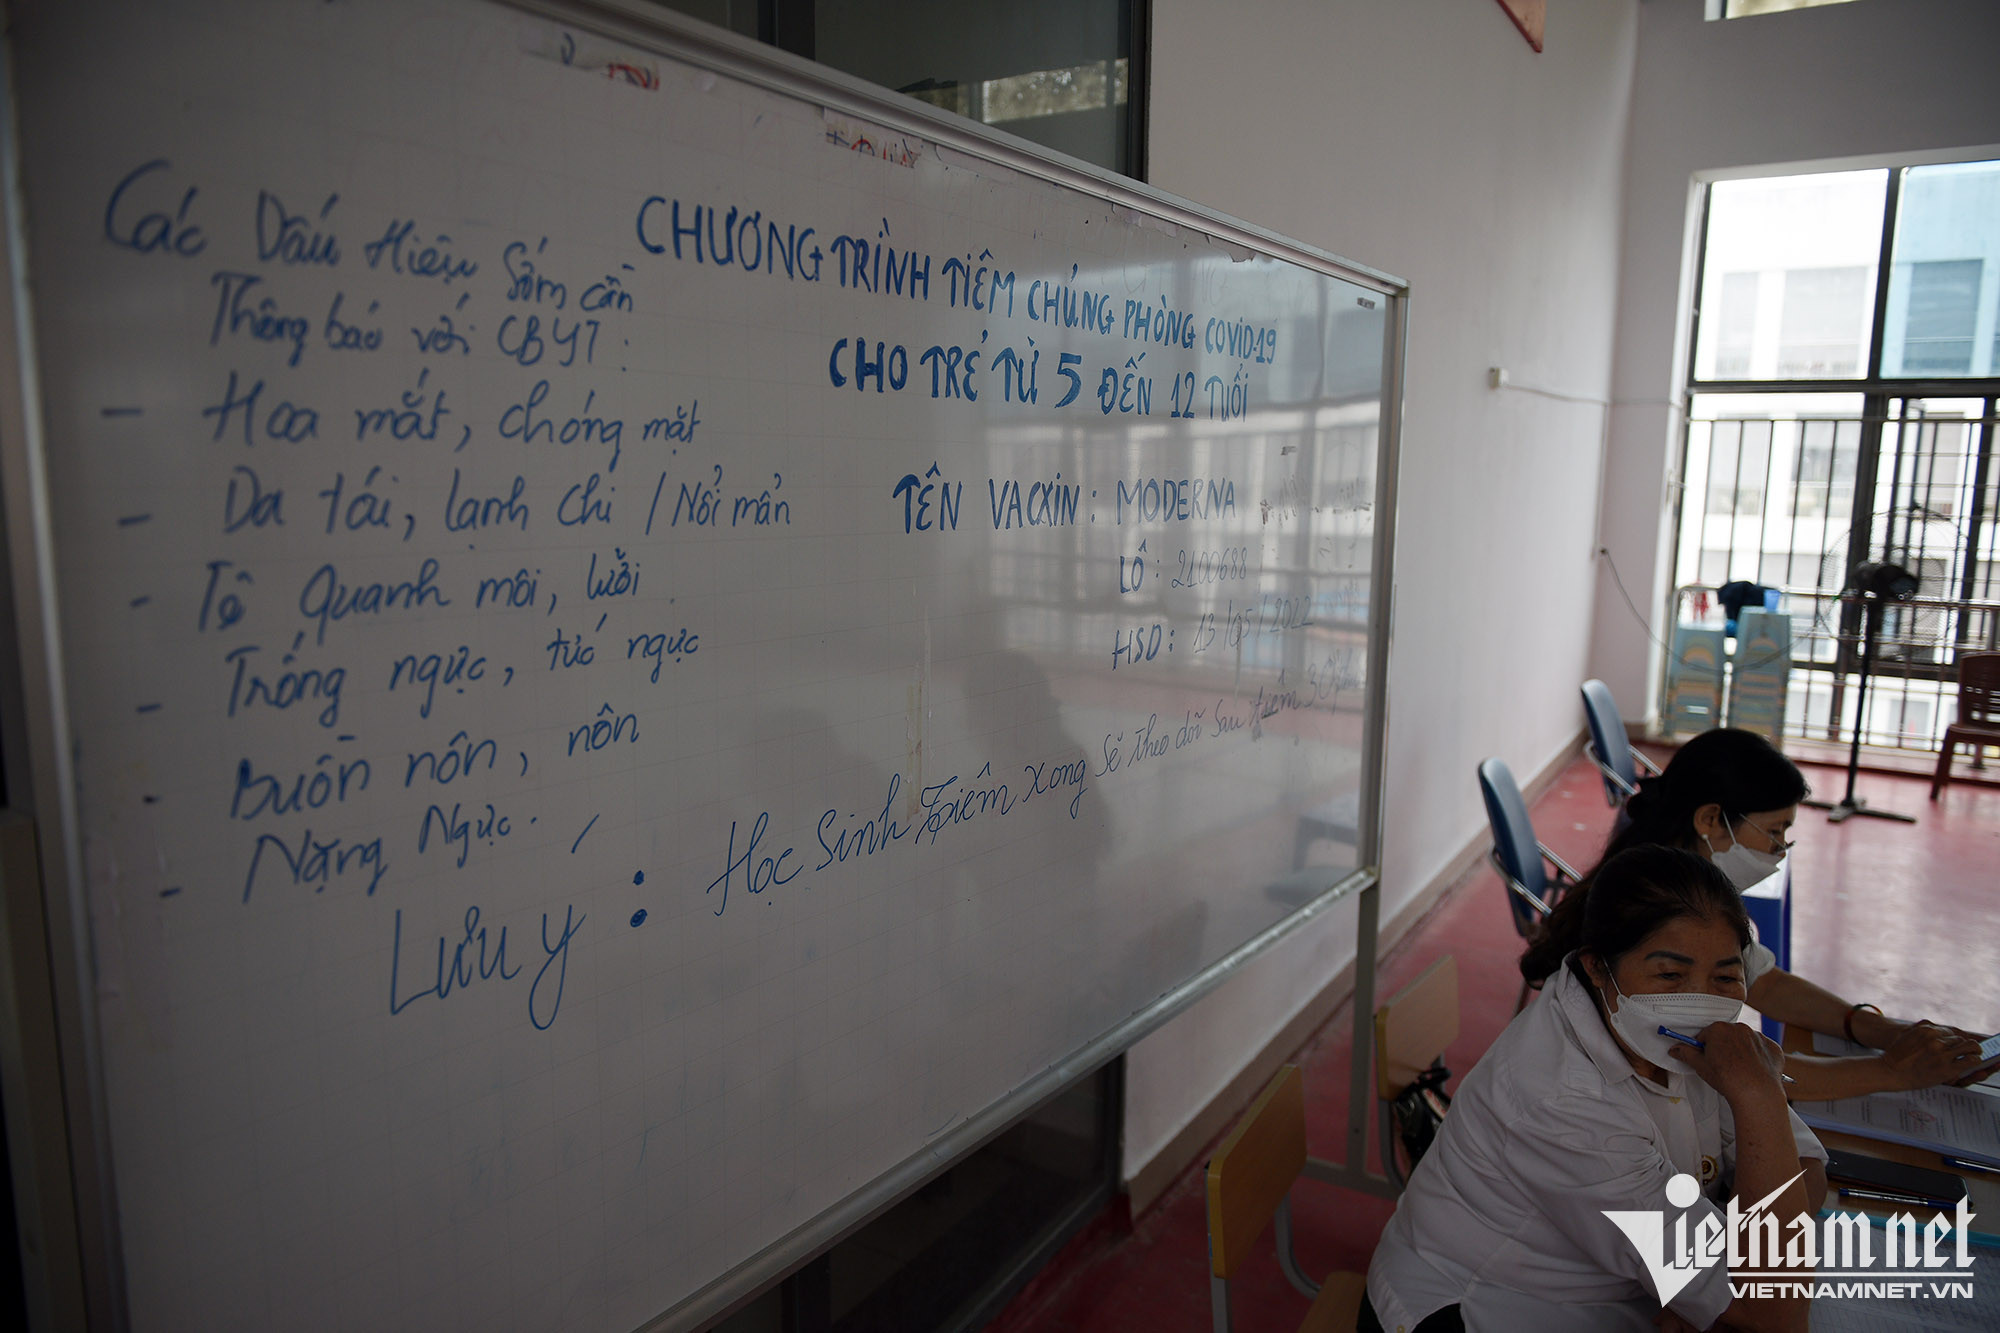 Các Dấu Hiệu Sớm cần
Thông báo với CBYT:
- Hoa mắt, chóng mặt
- Da tái, lạnh chi / Nổi mẩn
- Tê Quanh môi, lưỡi
- Trống ngực, tức ngực
- Buồn nôn, nôn
- Nặng Ngực.
CHƯƠNG TRÌNH TIÊM CHỦNG PHÒNG COVID-19
CHO TRẺ TỪ 5 ĐẾN 12 TUỔI
TÊN VACXIN: MODERNA
LÔ: 2100688
HSD: 13/05/2022
Lưu ý: Học Sinh tiêm xong sẽ theo dõi sau tiêm 30
Vietnamnet
VIETNAMNET.VN